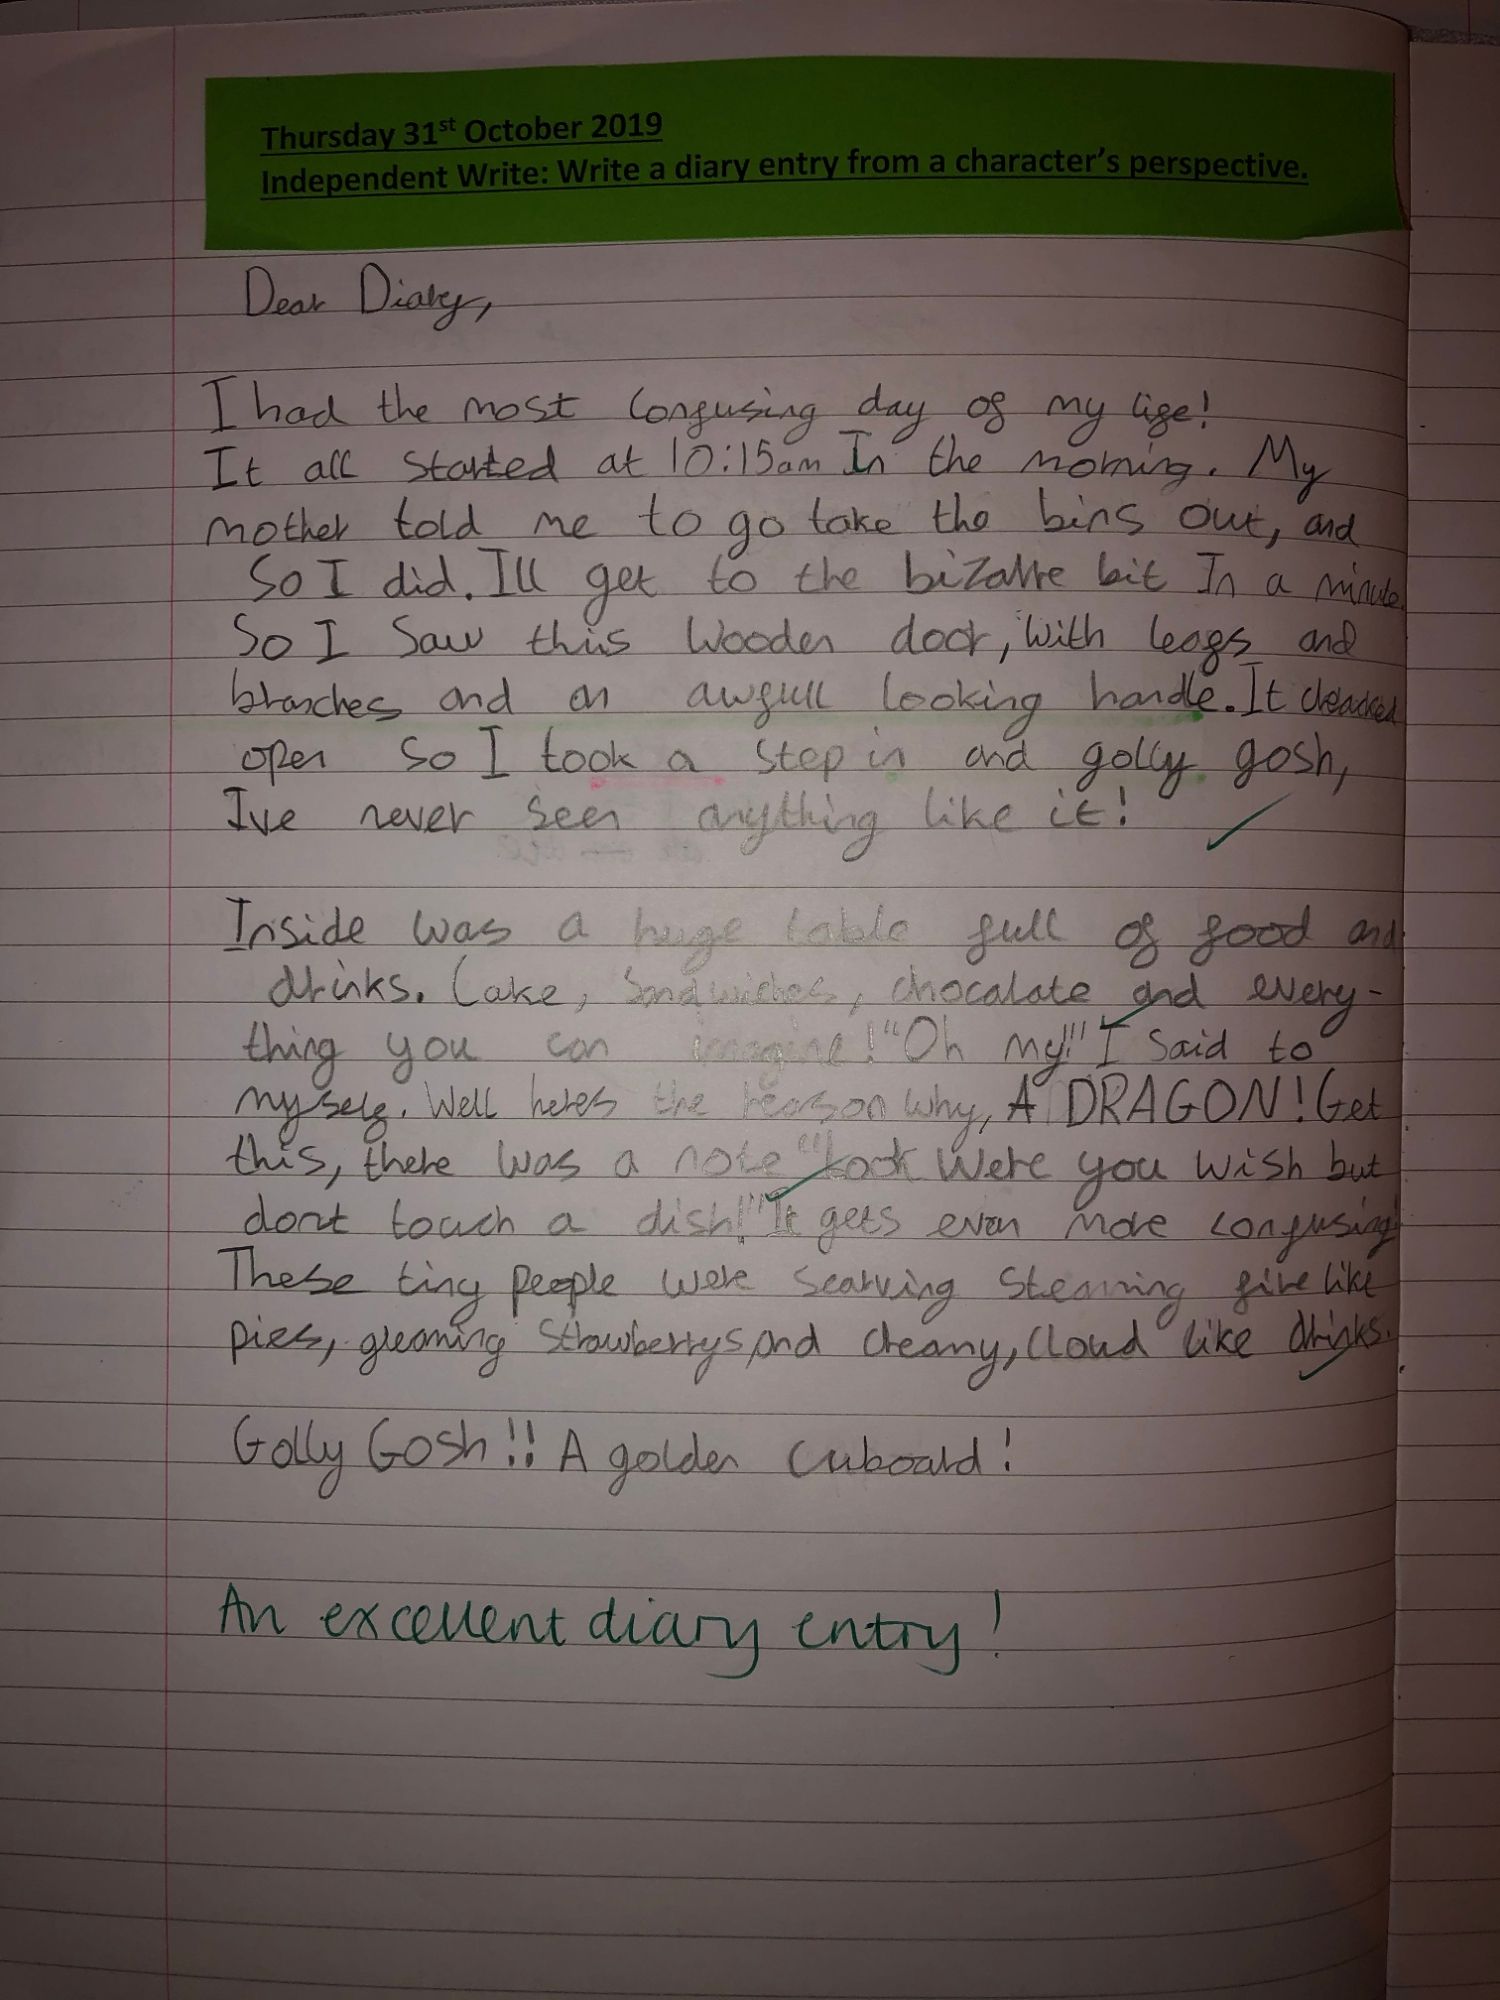 Thursday 31st October 2019
Independent Write: Write a diary entry from a character's perspective.
Dear Diary,
I had the most confusing day of my life!
It all started at 10:15am In the morning. My
mother told me to go take the bins out, and
So I did. Ill get to the bizarre bit In a minute.
So I Saw this Wooden door, with leafs and
branches and an awfull looking handle. It creacked
open so I took a step in and golly gosh,
Ive never seen anything like it!
Inside was a huge table full of food and
drinks. Cake, Sandwiches, chocalate and every-
thing you can imagine! "Oh my!" I said to
myself. Well heres the reason why, A DRAGON! Get
this, there was a note "Look Were you wish but
dont touch a dish!" It gets even more confusing!
These tiny people were scarving Steaming fire like
pies, gleaming Strawberrys, and creamy, Cloud like drinks.
Golly Gosh!! A golden Cuboard!
An excellent diary entry!